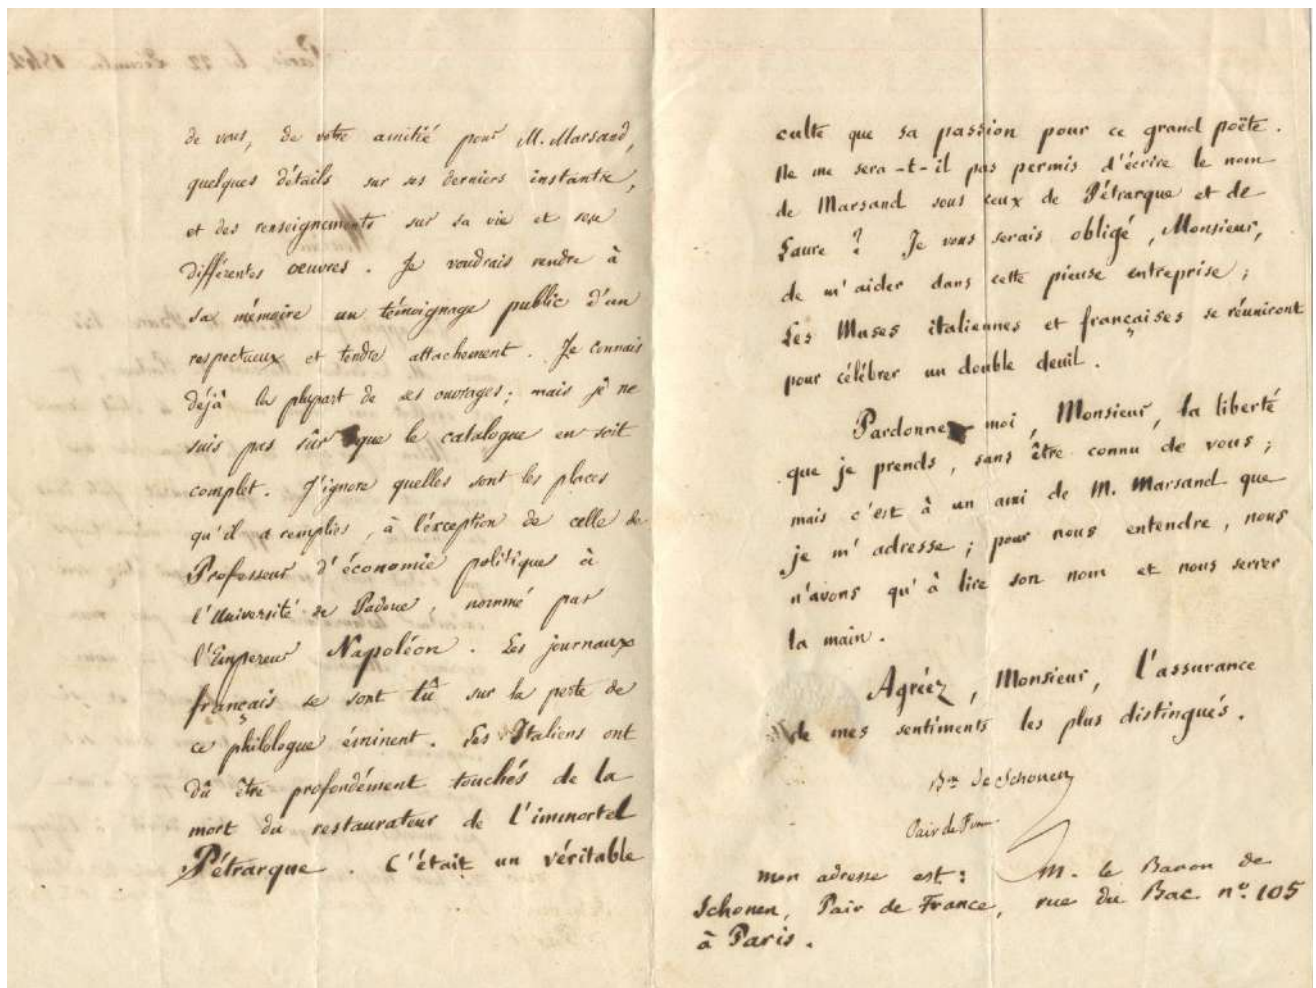 de vous, de votre amitié pour M. Marsand,
quelques détails sur ses derniers instants,
et des renseignements sur sa vie et ses
différentes oeuvres. Je voudrais rendre à
sa mémoire un témoignage public d'un
respectueux et tendre attachement. Je connais
déjà la plupart de ses ouvrages; mais je ne
suis pas sûr que le catalogue en soit
complet. J'ignore quelles sont les places
qu'il a remplies, à l'exception de celle de
Professeur d'économie politique à
l'Université de Padoue, nommé par
l'Empereur Napoléon. Les journaux
français se sont tû sur la perte de
ce philologue éminent. Les Italiens ont
dû être profondément touchés de la
mort du restaurateur de l'immortel
Pétrarque. C'était un véritable
culte que sa passion pour ce grand poëte.
Ne me sera-t-il pas permis d'écrire le nom
de Marsand sous ceux de Pétrarque et de
Laure? Je vous serais obligé, Monsieur,
de m'aider dans cette pieuse entreprise;
Les Muses italiennes et françaises se réuniront
pour célébrer un double deuil.
Pardonnez moi, Monsieur, la liberté
que je prends, sans être connu de vous;
mais c'est à un ami de M. Marsand que
je m'adresse; pour nous entendre, nous
n'avons qu'à lire son nom et nous serrer
la main.
Agréez, Monsieur, l'assurance
de mes sentiments les plus distingués.
Bon de Schonen
Pair de France
mon adresse est: M. le Baron de
Schonen, Pair de France, rue du Bac n.º 105
à Paris.